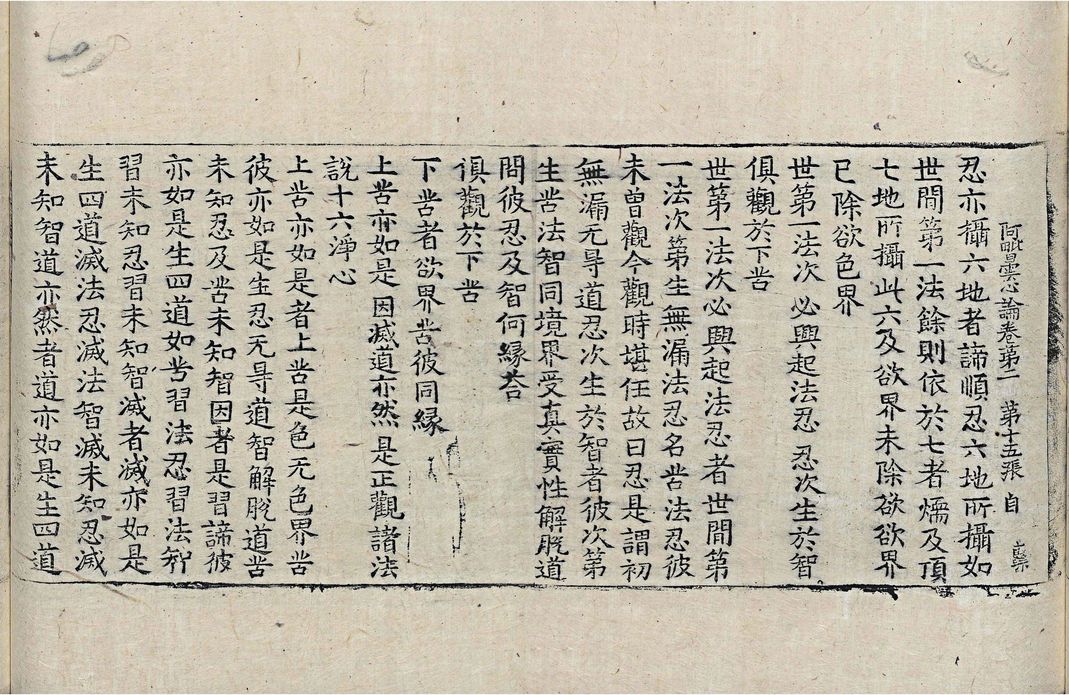 阿毗曇心論卷第二　第十五張　自
忍亦攝六地者諦順忍六地所攝如
世間第一法餘則依於七者煗及頂
七地所攝此六及欲界未除欲欲界
已除欲色界
世第一法次　必興起法忍　忍次生於智
俱觀於下苦
世第一法次必興起法忍者世間第
一法次第生無漏法忍名苦法忍彼
未曾觀今觀時堪任故曰忍是謂初
無漏无㝵道忍次生於智者彼次第
生苦法智同境界受真實性解脫道
問彼忍及智何緣荅
俱觀於下苦
下苦者欲界苦彼同緣
上苦亦如是　因滅道亦然　是正觀諸法
說十六淨心
上苦亦如是者上苦是色无色界苦
彼亦如是生忍无㝵道智解脫道苦
未知忍及苦未知智因者是習諦彼
亦如是生四道如苦習法忍習法智
習未知忍習未知智滅者滅亦如是
生四道滅法忍滅法智滅未知忍滅
未知智道亦然者道亦如是生四道